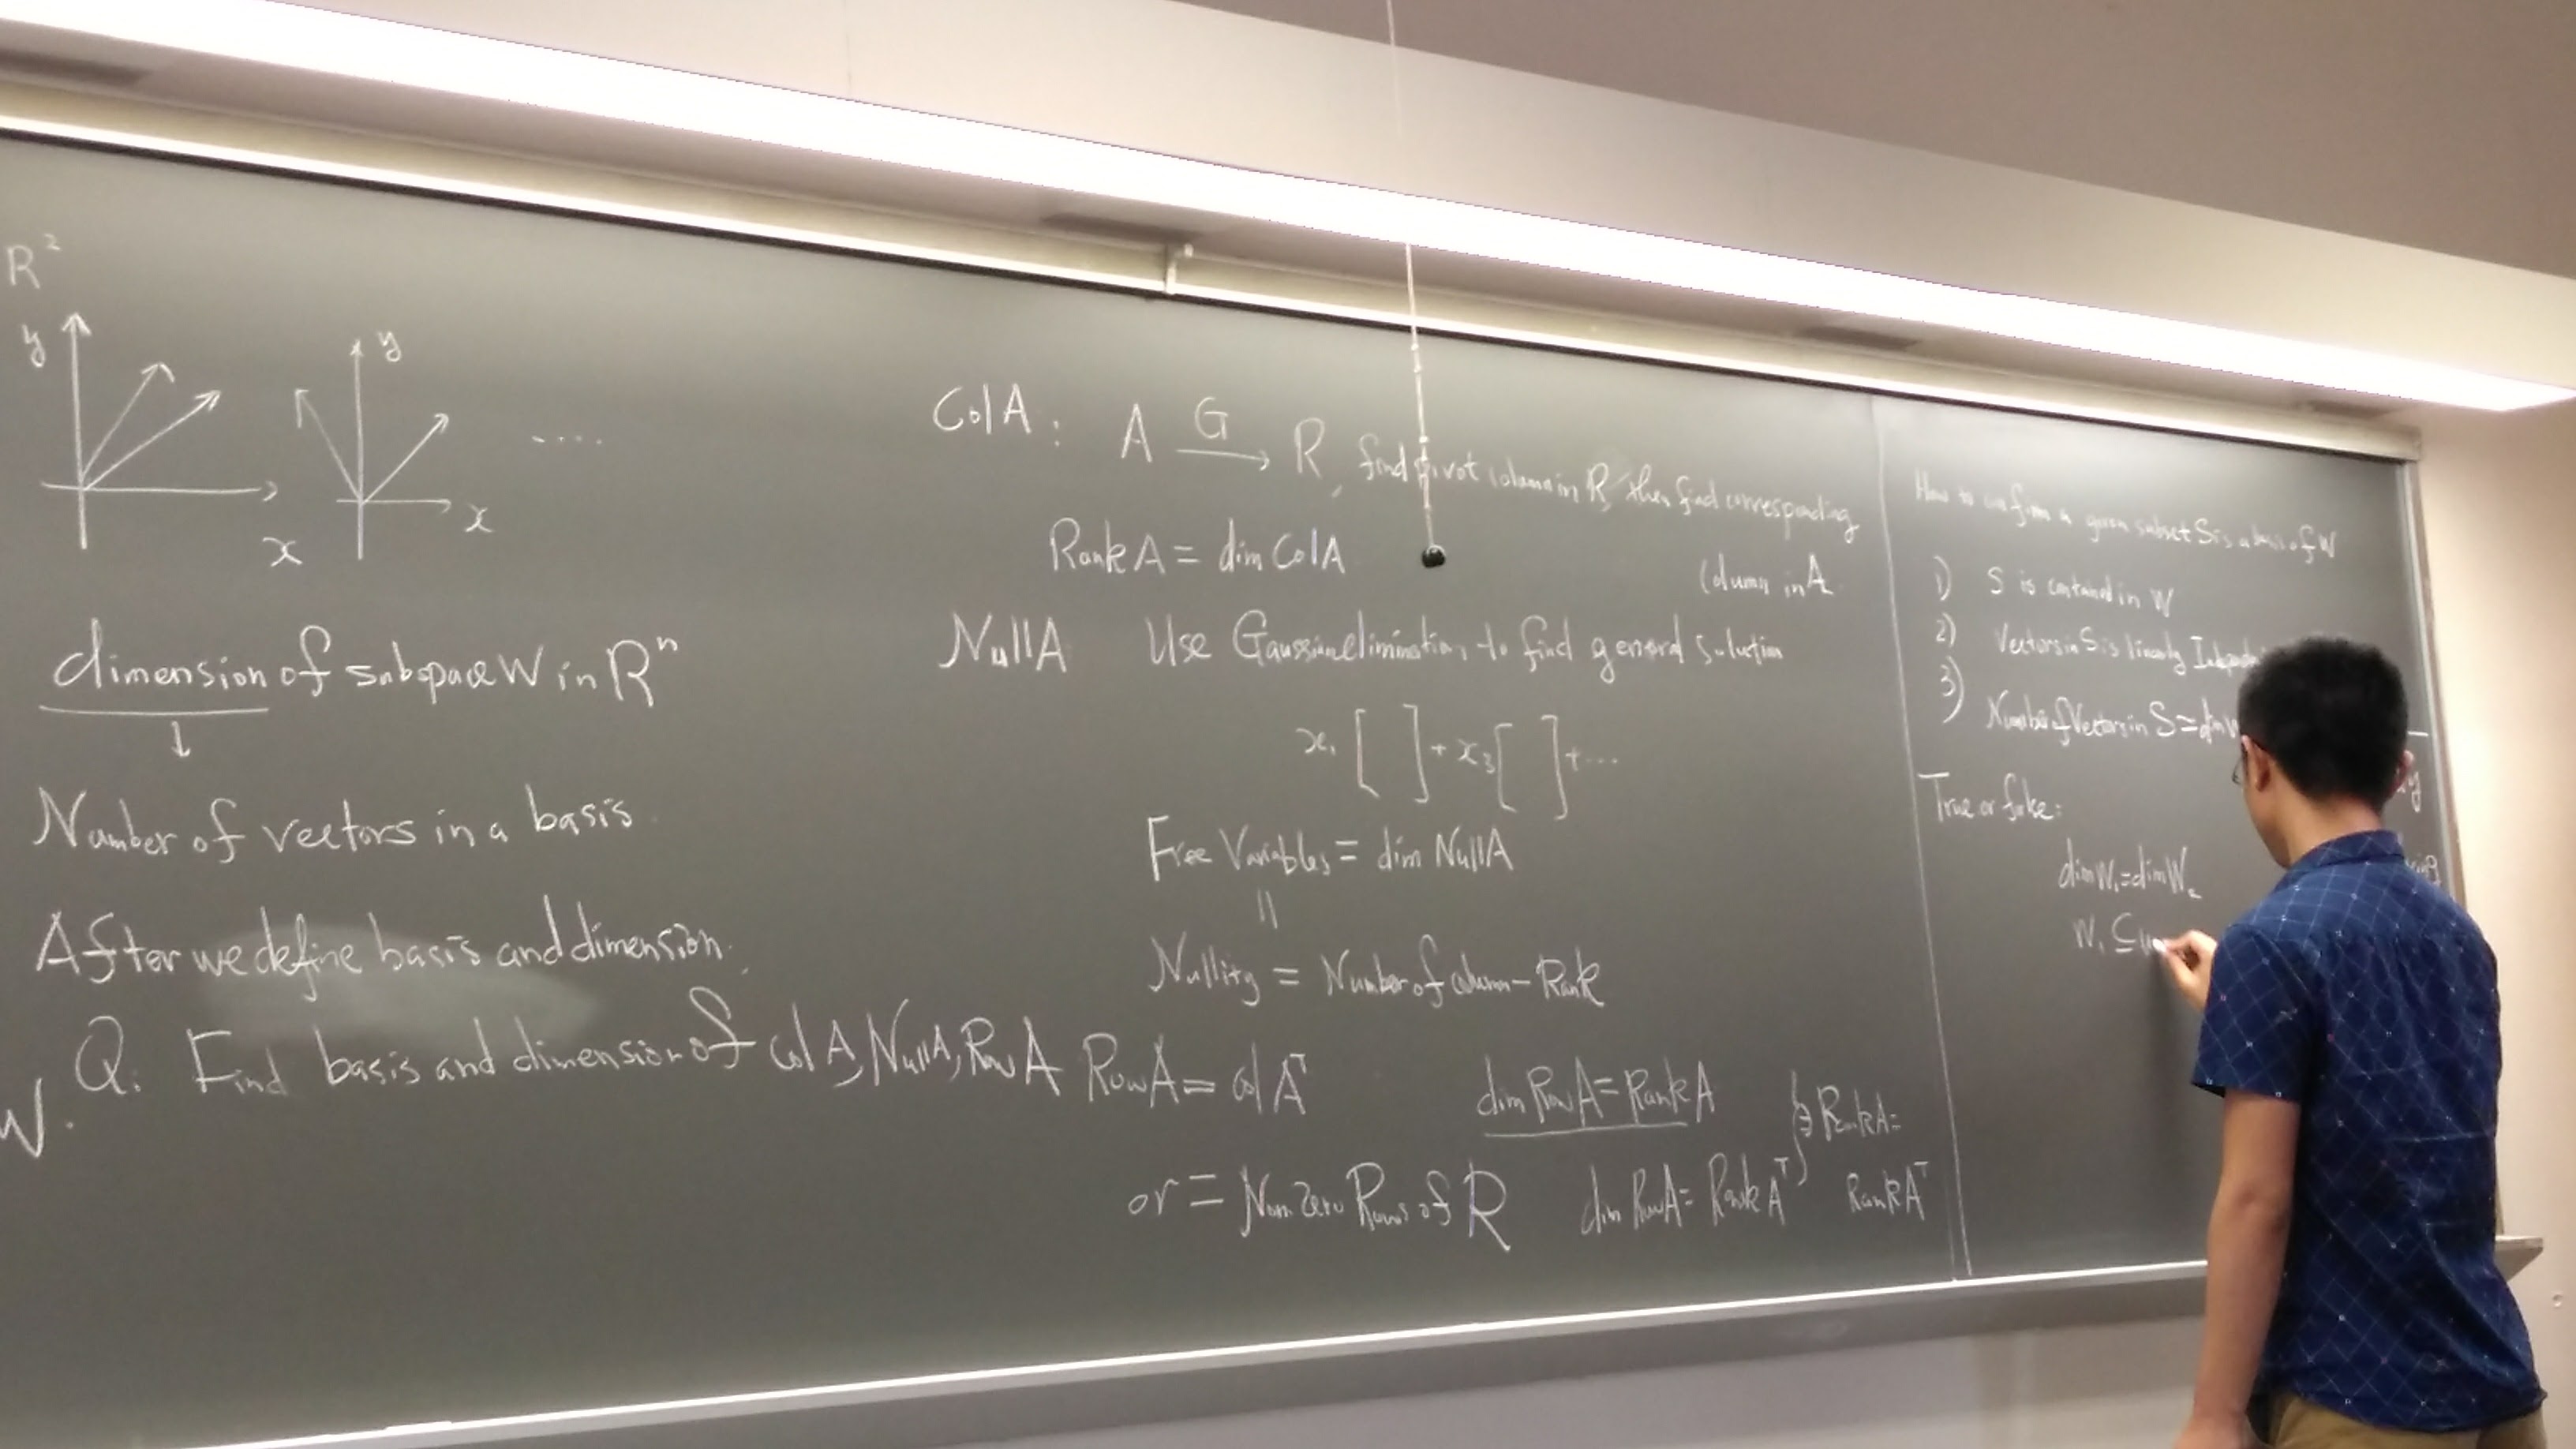 R²
y
x
y
x
....
dimension of subspace W in Rⁿ
↓
Number of vectors in a basis
After we define basis and dimension.
Q: Find basis and dimension of Col A, Null A, Row A
W.
Col A: A →G R, find pivot column in R, then find corresponding
column in A
Rank A = dim Col A
Null A Use Gaussian elimination to find general solution
x₁ [ ] + x₃ [ ] + ...
Free Variables = dim Null A
||
Nullity = Number of column - Rank
Row A = Col Aᵀ
or = Non zero Rows of R
dim Row A = Rank A
dim Row A = Rank Aᵀ
} ⇒ Rank A =
Rank Aᵀ
How to confirm a given subset S is a basis of W
1) S is contained in W
2) Vectors in S is linearly
3) Number of Vectors in S = dim W
True or false:
dim W₁ = dim W₂
W₁ ⊆